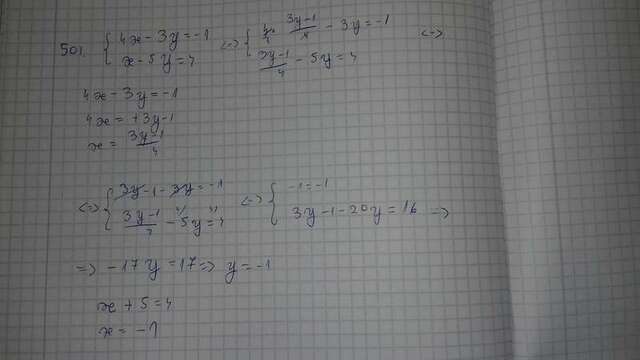 501 { 4x - 3y = -1 (=) { 4 · (3y-1)/4 - 3y = -1 (=)
x - 5y = 4 (3y-1)/4 - 5y = 4
4x - 3y = -1
4x = +3y -1
x = (3y-1)/4
(=) { 3y - 1 - 3y = -1 (=) { -1 = -1
(3y-1)/4 - 5y = 4 3y - 1 - 20y = 16 =)
=) -17y = 17 =) y = -1
x + 5 = 4
x = -1